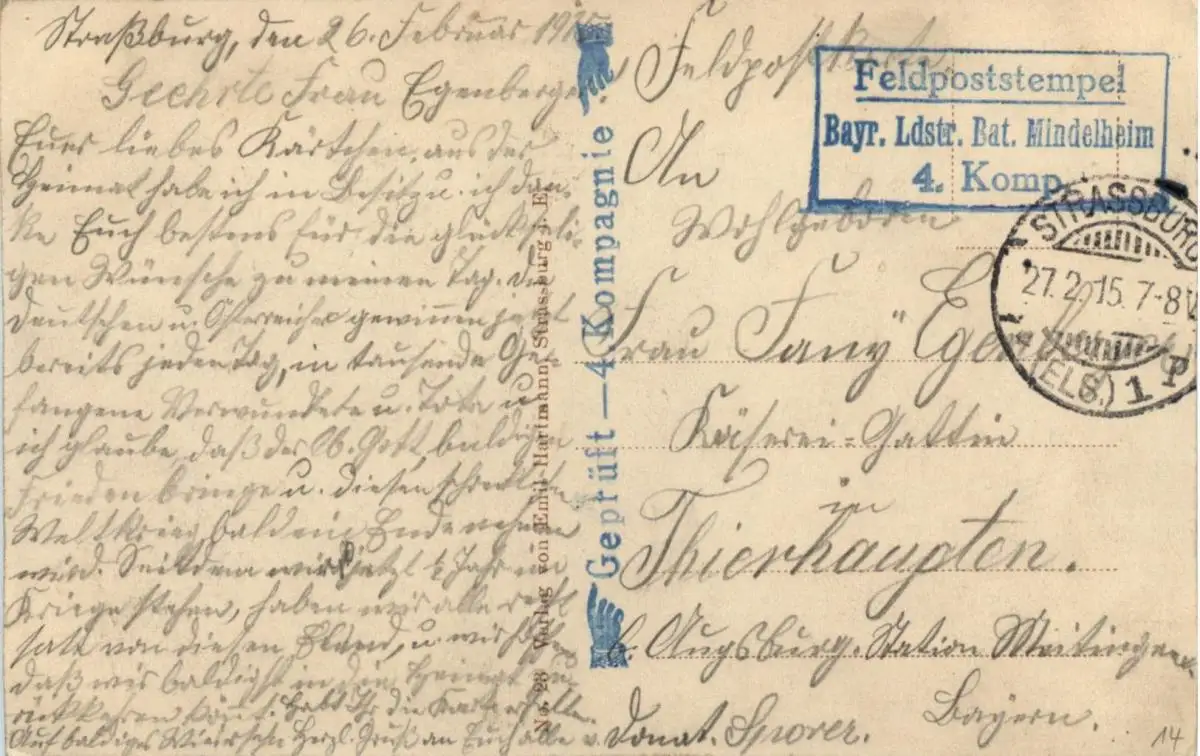 Straßburg, den 26. Februar 1915
Geehrte Frau Egenberger!
Eure liebes Kärtchen, aus der
Heimat habe ich in Besitz u. ich dan-
ke Euch bestens für die glückseli-
gen Wünsche zu meinen Tag. Die
Deutschen u. Österreicher gewinnen jetzt
bereits jeden Tag, in tausende Ge-
fangene Verwundete u. Tote u.
ich glaube, daß der Ob. Gott, baldigen
Frieden bringe u. diesen schrecklichen
Weltkrieg, bald ein Ende nehmen
wird. Seitdem wir jetzt ½ Jahr im
Kriege stehen, haben wir alle recht
satt von diesen Elend, u. wir hoffen
daß wir baldigst in den Heimat zu-
rückkehren könnt. Habt Ihr die Karte erhalten.
Auf baldiges Wiedersehn Herzl. Gruß an Euch alle v. Donat. Sporer.
No. 23 Verlag von Emil Hartmann, Strassburg i. E.
Geprüft — 4 Kompagnie
Feldpostkarte
Feldpoststempel
Bayr. Ldstr. Bat. Mindelheim
4. Komp.
STRASSBURG
27.2.15. 7-8V
(ELS.) 1 P
An
Wohlgeboren
Frau Fany Egenberger
Käserei-Gattin
in
Thierhaupten.
b. Augsburg. Station Meitingen.
Bayern.
14